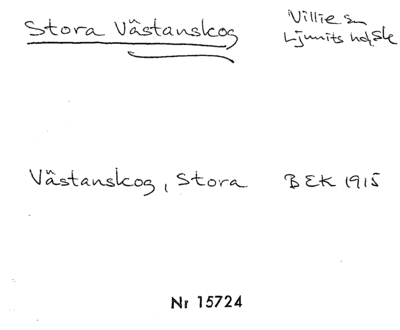 Stora Västanskog
Villie sn
Ljunits hd, Sk
Västanskog, Stora BEK 1915
Nr 15724